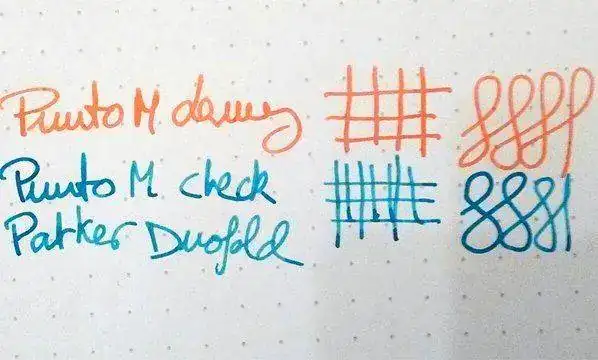 Punto M damey
Punto M check
Parker Duofold